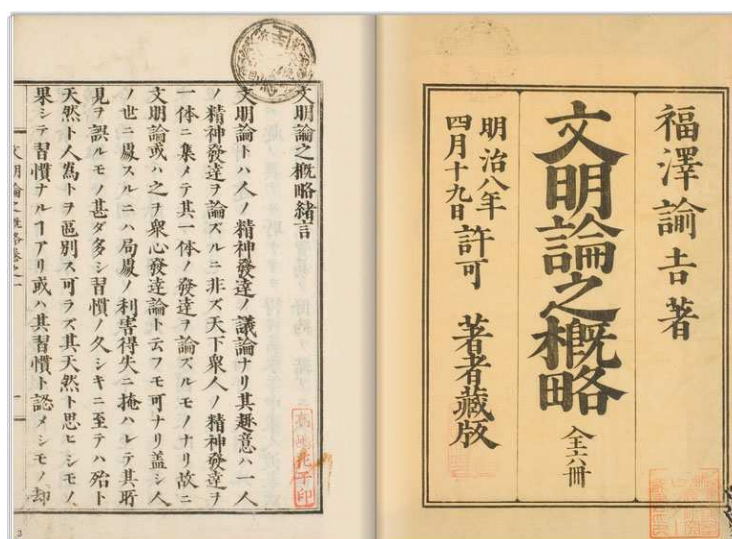 福澤諭吉著
文明論之概略 全六冊
明治八年
四月十九日 許可 著者藏版
文明論之概略緒言
文明論トハ人ノ精神發達ノ議論ナリ其趣意ハ一人
ノ精神發達ヲ論ズルニ非ズ天下衆人ノ精神發達ヲ
一体ニ集メテ其一体ノ發達ヲ論ズルモノナリ故ニ
文明論或ハ之ヲ衆心發達論ト云フモ可ナリ蓋シ人
ノ世ニ處スルニハ局處ノ利害得失ニ掩ハレテ其所
見ヲ誤ルモノ甚ダ多シ習慣ノ久シキニ至テハ殆ト
天然ト人爲トヲ區別ス可ラズ其天然ト思ヒシモノ、
果シテ習慣ナルヿアリ或ハ其習慣ト認メシモノ却
文明論之概略卷之一